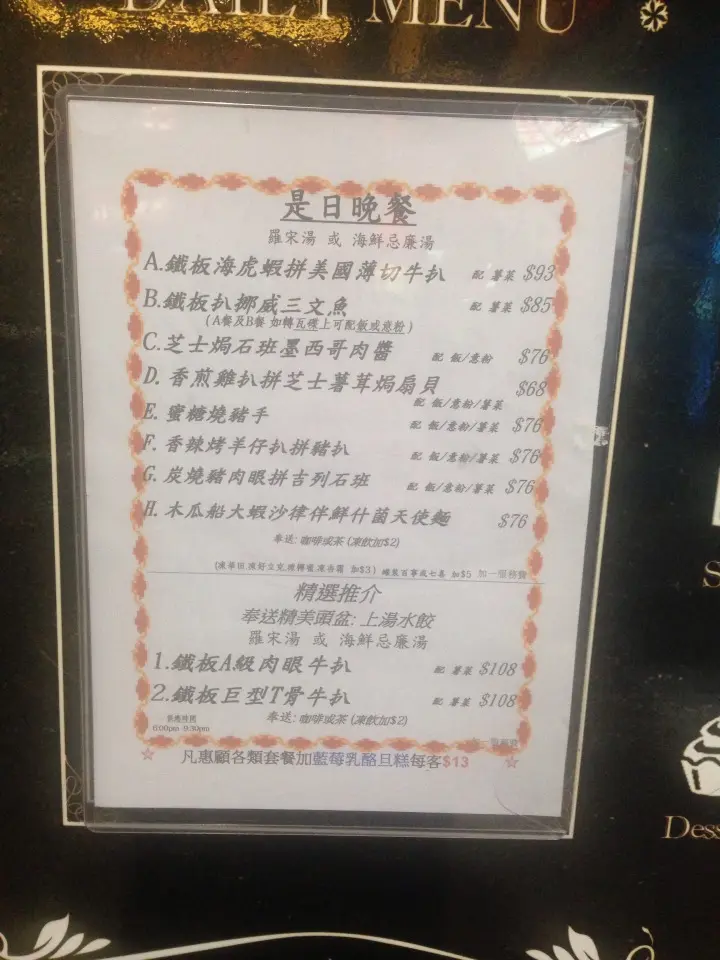 DAILY MENU
是日晚餐
羅宋湯 或 海鮮忌廉湯
A.鐵板海虎蝦拼美國薄切牛扒 配 薯菜 $93
B.鐵板扒挪威三文魚 配 薯菜 $85
(A餐及B餐 如轉瓦碟上可配飯或意粉)
C.芝士焗石班墨西哥肉醬 配 飯/意粉 $76
D. 香煎雞扒拼芝士薯茸焗扇貝 $68
配 飯/意粉/薯菜
E. 蜜糖燒豬手 配 飯/意粉/薯菜 $76
F. 香辣烤羊仔扒拼豬扒 配 飯/意粉/薯菜 $76
G. 炭燒豬肉眼拼吉列石班 配 飯/意粉/薯菜 $76
H. 木瓜船大蝦沙律伴鮮什菌天使麵 $76
奉送: 咖啡或茶 (凍飲加$2)
加$3) 罐裝百事或七喜 加$5 加一服務費
精選推介
奉送精美頭盆: 上湯水餃
羅宋湯 或 海鮮忌廉湯
1.鐵板A級肉眼牛扒 配 薯菜 $108
2.鐵板巨型T骨牛扒 配 薯菜 $108
奉送: 咖啡或茶 (凍飲加$2)
供應時間
6:00pm 9:30pm
凡惠顧各類套餐加藍莓乳酪旦糕每客$13
Dess